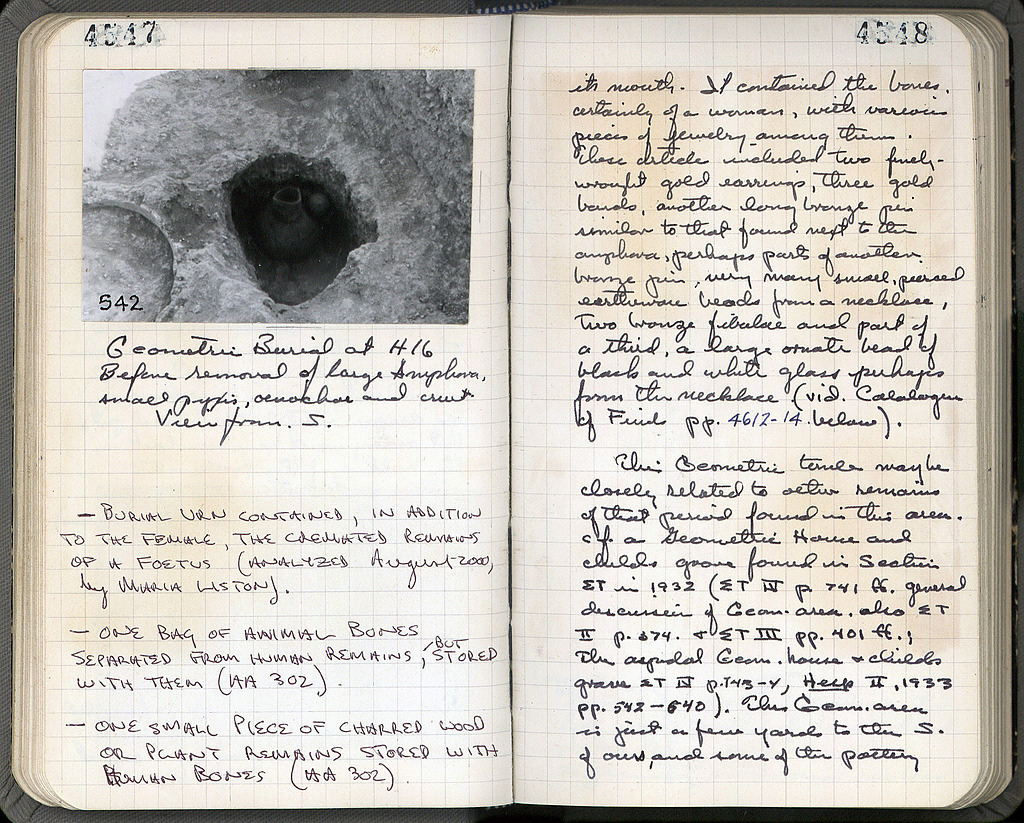 4547
542
Geometric Burial at H16
Before removal of large Amphora,
small pyxis, oenochoe and cruet
View from S.
— BURIAL URN CONTAINED, IN ADDITION
TO THE FEMALE, THE CREMATED REMAINS
OF A FOETUS (ANALYZED August 2000,
by MARIA LISTON).
— ONE BAG OF ANIMAL BONES
SEPARATED FROM HUMAN REMAINS, BUT STORED
WITH THEM (AA 302).
— ONE SMALL PIECE OF CHARRED WOOD
OR PLANT REMAINS STORED WITH
HUMAN BONES (AA 302).
4548
its mouth. It contained the bones,
certainly of a woman, with various
pieces of jewelry among them.
These article included two finely-
wrought gold earrings, three gold
bands, another long bronze pin
similar to that found next to the
amphora, perhaps part of another
bronze pin, very many small, pierced
earthenware beads from a necklace,
two bronze fibulae and part of
a third, a large ornate bead of
black and white glass perhaps
from the necklace (vid. Catalogue
of Finds pp. 4612-14 below).
This Geometric tomb may be
closely related to other remains
of that period found in this area.
cf. a Geometric House and
childs grave found in Section
ΣΤ in 1932 (ΣΤ IV p. 741 ff. general
discussion of Geom. area. also ΣΤ
II p. 374. & ΣΤ III pp. 401 ff.;
The apsidal Geom. house & childs
grave ΣΤ IV p. 743-4, Hesp II, 1933
pp. 542-640). This Geom. area
is just a few yards to the S.
of ours, and some of the pottery